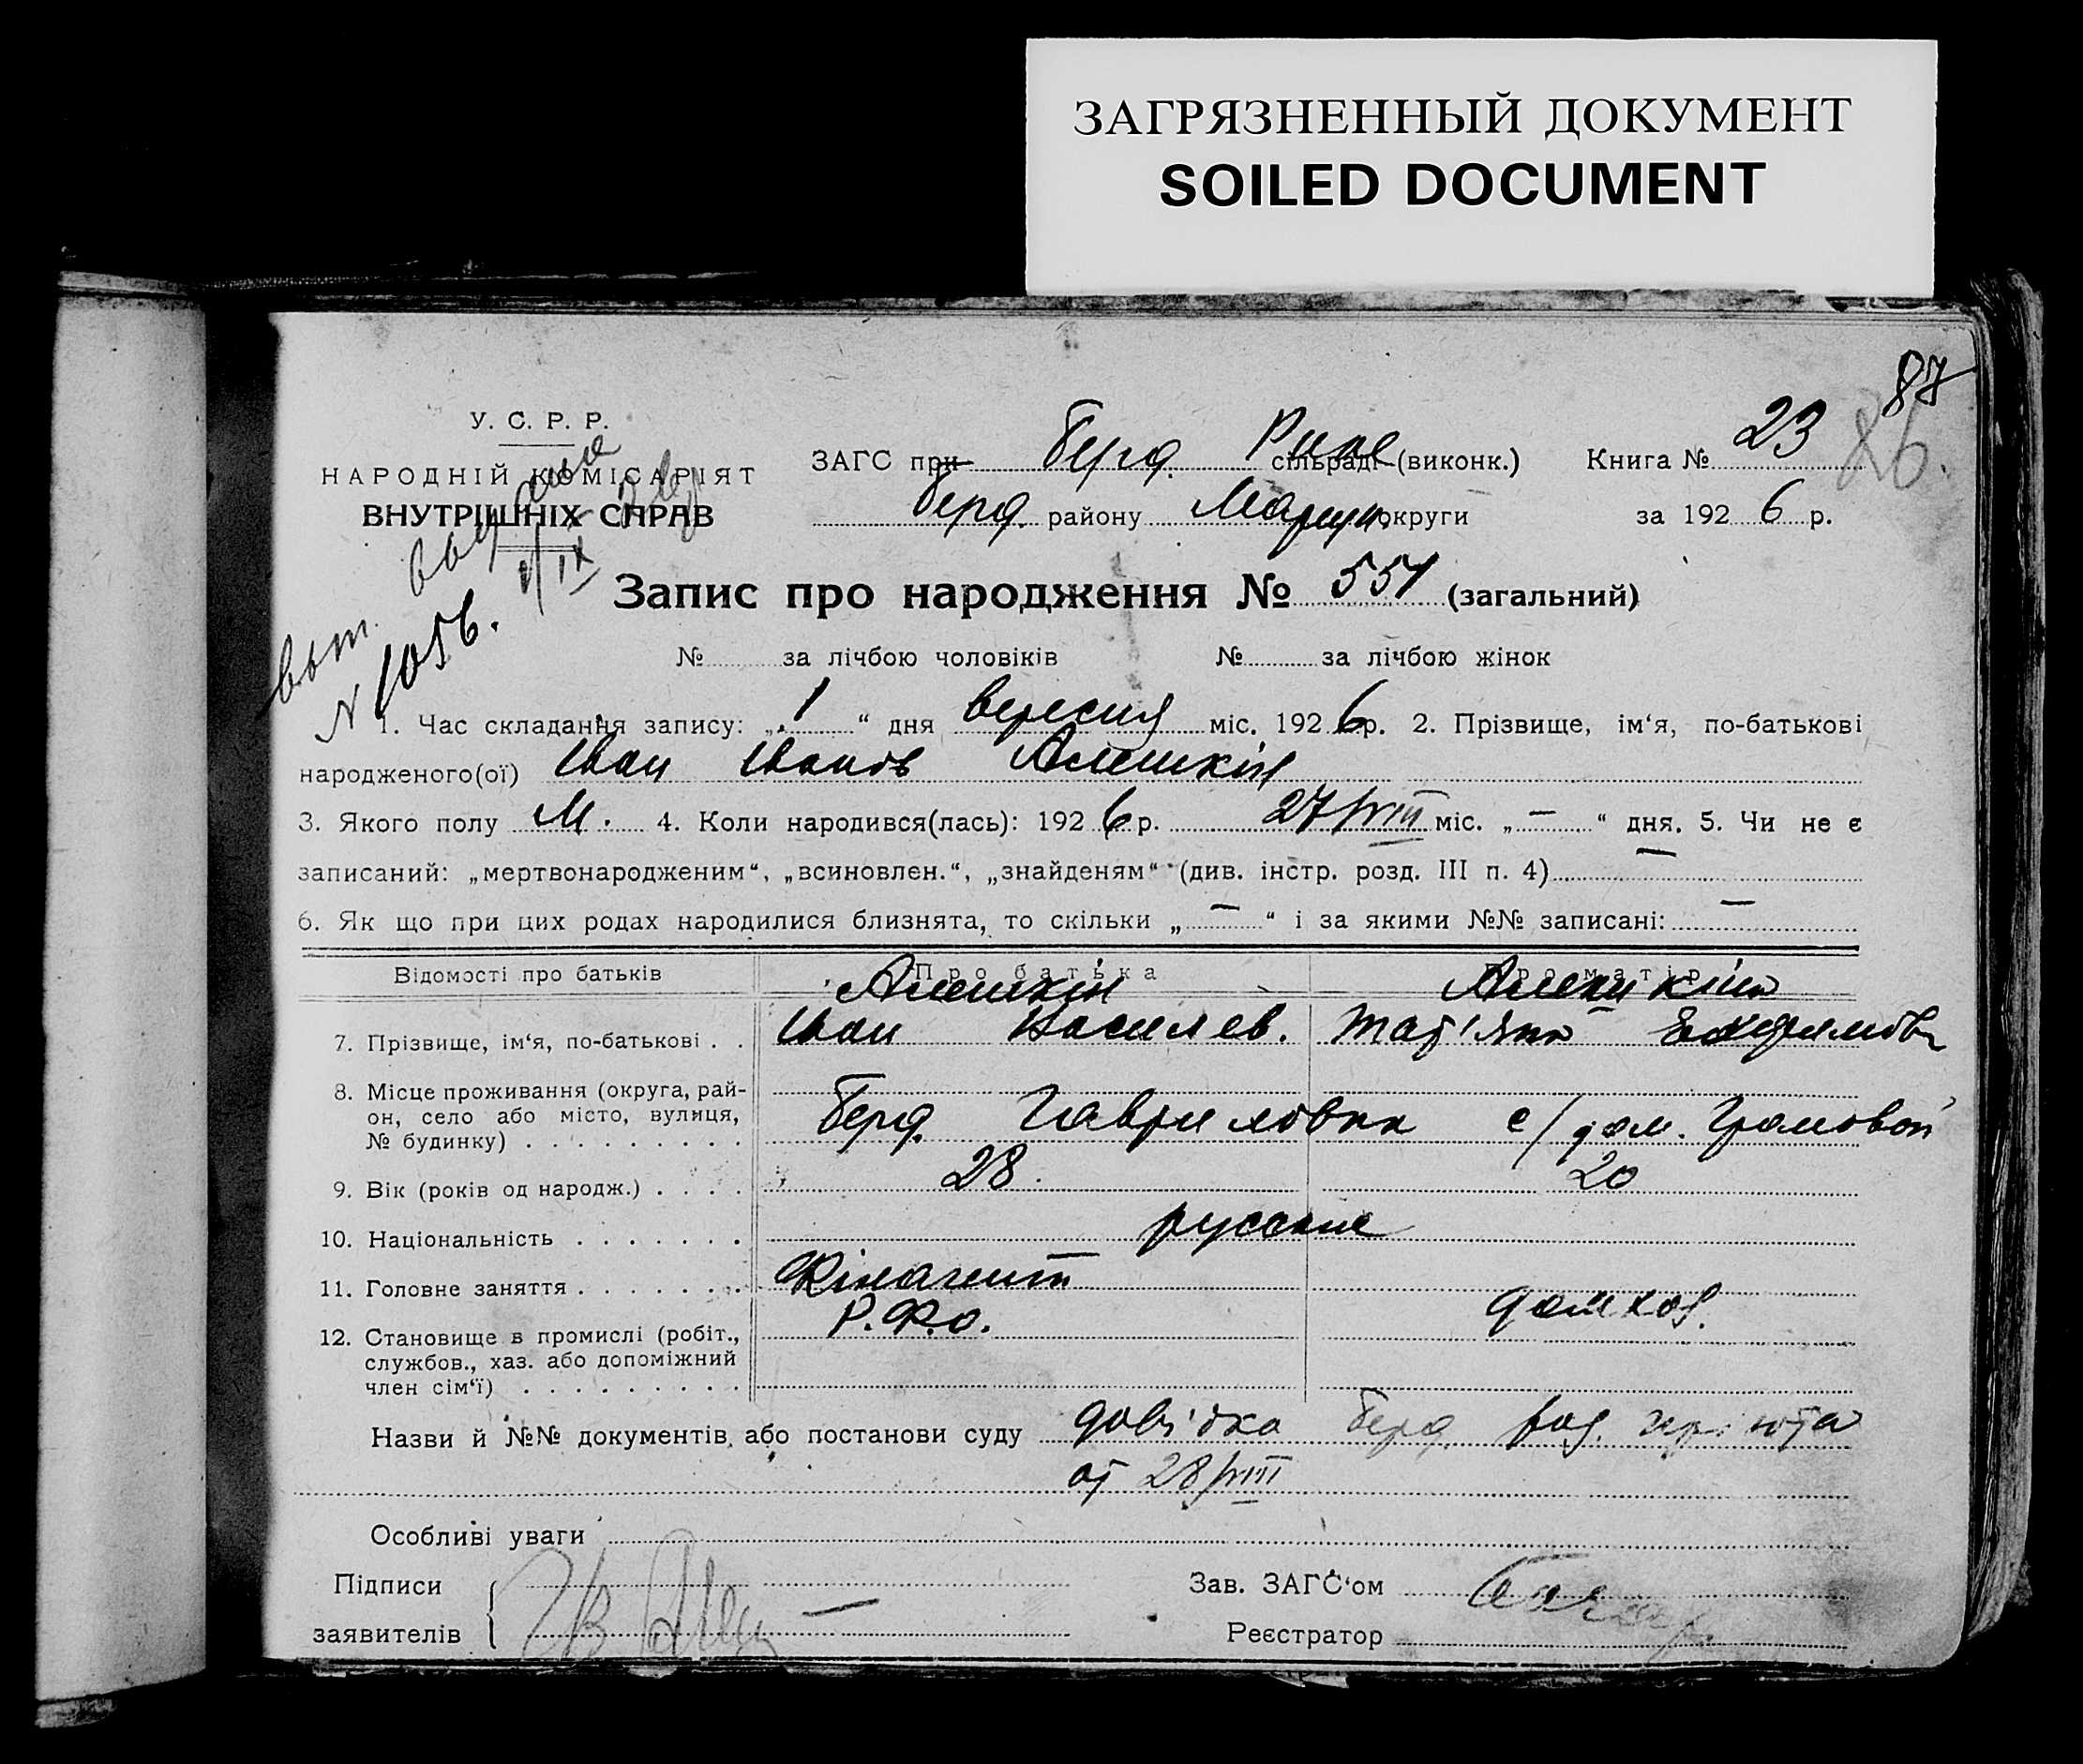 ЗАГРЯЗНЕННЫЙ ДОКУМЕНТ
SOILED DOCUMENT
87
86.
У. С. Р. Р.
НАРОДНІЙ КОМІСАРІЯТ
ВНУТРІШНІХ СПРАВ
ЗАГС при Берд. Рике сільраді (виконк.) Книга № 23
Берд. району Маріуп. округи за 1926 р.
вып.
N 1056.
Запис про народження № 551 (загальний)
№ за лічбою чоловіків № за лічбою жінок
1. Час складання запису: „1“ дня вересня міс. 1926 р. 2. Прізвище, ім‘я, по-батькові
народженого(ої) Іван Іванов Алешкін
3. Якого полу М. 4. Коли народився(лась): 1926 р. 27/VIII міс. „—“ дня. 5. Чи не є
записаний: „мертвонародженим“, „всиновлен.“, „знайденям“ (див. інстр. розд. III п. 4) —
6. Як що при цих родах народилися близнята, то скільки „—“ і за якими №№ записані: —
Відомості про батьків Про батька Про матір
Алешкін Алешкіна
7. Прізвище, ім‘я, по-батькові . . Іван Василев. Тат'яна Ехфимовн
8. Місце проживання (округа, рай-
он, село або місто, вулиця,
№ будинку) . . . . . . . . . Берд. Гавриловка с/ дом. Громовой
9. Вік (років од народж.) . . . . 28. 20
10. Національність . . . . . . . русские
11. Головне заняття . . . . . . . Фінагент
Р.Ф.О. домхоз.
12. Становище в промислі (робіт.,
службов., хаз. або допоміжний
член сім‘ї) . . . . . . . . .
Назви й №№ документів або постанови суду довідка Берд. род.
от 28/VIII
Особливі уваги
Підписи
заявителів
Зав. ЗАГС‘ом
Реєстратор